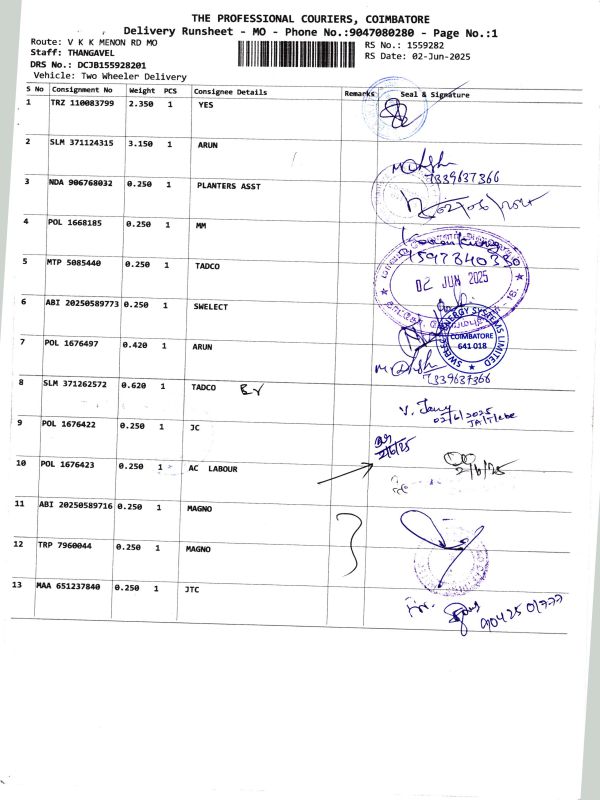 THE PROFESSIONAL COURIERS, COIMBATORE
Delivery Runsheet - MO - Phone No.:9047080280 - Page No.:1
Route: V K K MENON RD MO
RS No.: 1559282
Staff: THANGAVEL
RS Date: 02-Jun-2025
DRS No.: DCJB155928201
Vehicle: Two Wheeler Delivery
S No Consignment No Weight PCS Consignee Details Remarks Seal & Signature
1 TRZ 110083799 2.350 1 YES
2 SLM 371124315 3.150 1 ARUN
7339637366
3 NDA 906768032 0.250 1 PLANTERS ASST
4 POL 1668185 0.250 1 MM
9597840330
5 MTP 5085440 0.250 1 TADCO
02 JUN 2025
6 ABI 20250589773 0.250 1 SWELECT
SWELECT ENERGY SYSTEMS LIMITED
COIMBATORE
641 018
7 POL 1676497 0.420 1 ARUN
7339637366
8 SLM 371262572 0.620 1 TADCO
02/6/2025
9 POL 1676422 0.250 1 JC
2/6/25
10 POL 1676423 0.250 1 AC LABOUR
2/6/25
11 ABI 20250589716 0.250 1 MAGNO
12 TRP 7960044 0.250 1 MAGNO
13 MAA 651237840 0.250 1 JTC